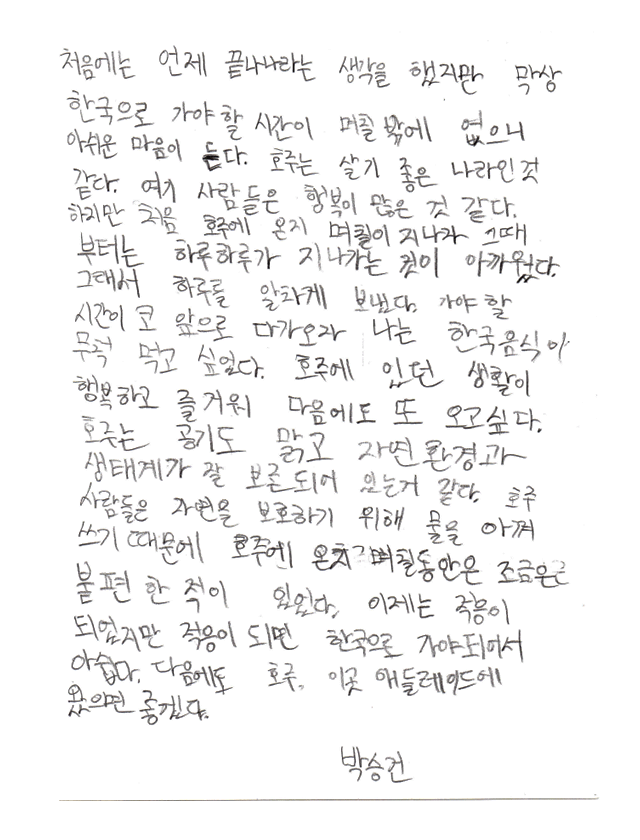 처음에는 언제 끝나나라는 생각을 했지만 막상
한국으로 가야 할 시간이 며칠 밖에 없으니
아쉬운 마음이 든다. 호주는 살기 좋은 나라인것
같다. 여기 사람들은 행복이 많은 것 같다.
하지만 처음 호주에 온지 며칠이 지나자 그때
부터는 하루하루가 지나가는 것이 아까웠다.
그래서 하루를 알차게 보냈다. 가야 할
시간이 코 앞으로 다가오자 나는 한국음식이
무척 먹고 싶었다. 호주에 있던 생활이
행복하고 즐거워 다음에도 또 오고싶다.
호주는 공기도 맑고 자연환경과
생태계가 잘 보존되어 있는거 같다. 호주
사람들은 자연을 보호하기 위해 물을 아껴
쓰기 때문에 호주에 온지 며칠동안은 조금은
불편 한 적이 있었다. 이제는 적응이
되었지만 적응이 되면 한국으로 가야되어서
아쉽다. 다음에도 호주, 이곳 애들레이드에
왔으면 좋겠다.
박승건